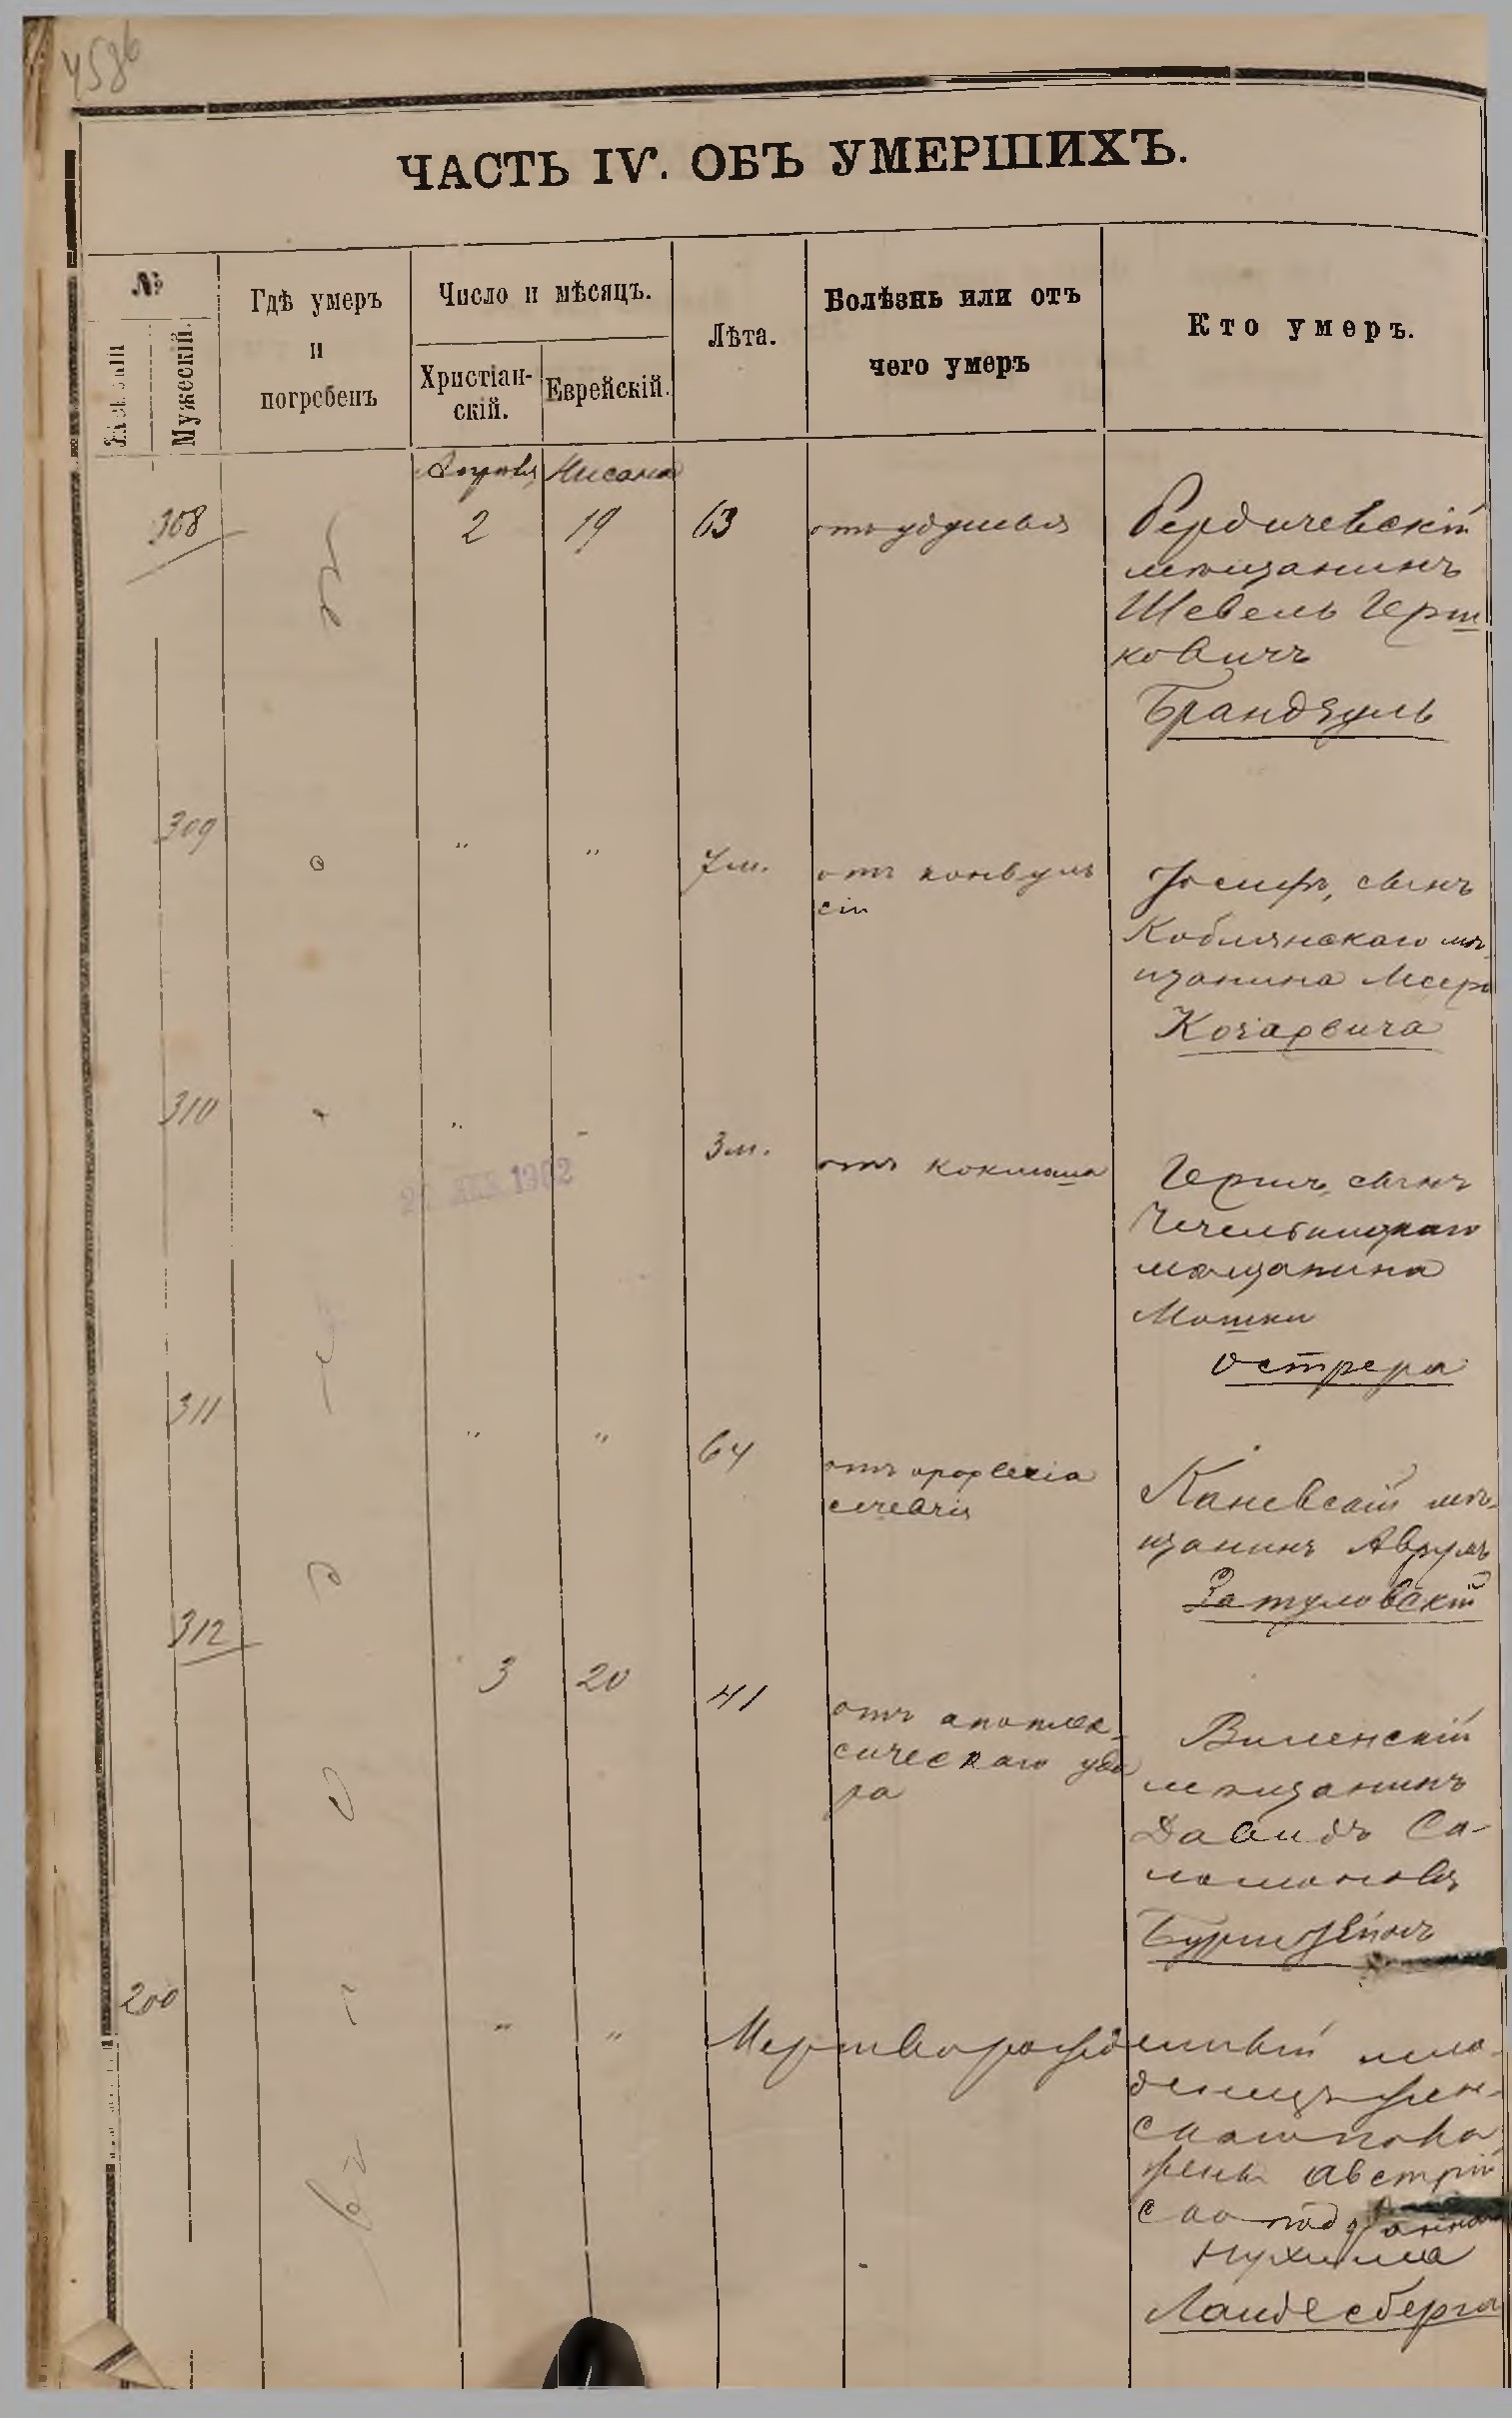 458б
ЧАСТЬ IV. ОБЪ УМЕРШИХЪ.
№
Женскій
Мужескій.
Гдѣ умеръ
и
погребенъ
Число и мѣсяцъ.
Христіан-
скій.
Еврейскій.
Лѣта.
Болѣзнь или отъ
чего умеръ
Кто умеръ.
Апрѣля Нисана
308 2 19 63 отъ удушья Бердичевскій
мѣщанинъ
Шевель Герш
ковичъ
Брандзуль
309 " " 7 м. отъ конвуль
сіи
Іосифъ, сынъ
Коблянскаго мѣ
щанина Меера
310 " 3 м. отъ коклюша Гершъ, сынъ
Чечельницкаго
мѣщанина
Мошки
Острера
311 " " 64 отъ apoplexia
cerebris
Каневскій мѣ-
щанинъ Аврумъ
Затуловскій
312 3 20 41 отъ апоплек-
сическаго уда
ра
Виленскій
мѣщанинъ
Давидъ Са-
ломоновъ
200 " " Мертворожденный мла-
денецъ жен-
скаго пола
жены австрій
ско подданнаго
Нухима
Ландесберга
1902